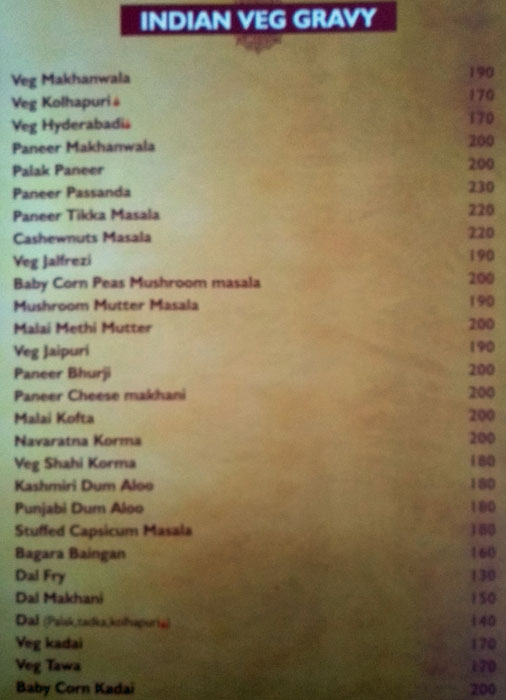 INDIAN VEG GRAVY
Veg Makhanwala 190
Veg Kolhapuri 170
Veg Hyderabadi 170
Paneer Makhanwala 200
Palak Paneer 200
Paneer Passanda 230
Paneer Tikka Masala 220
Cashewnuts Masala 220
Veg Jalfrezi 190
Baby Corn Peas Mushroom masala 200
Mushroom Mutter Masala 190
Malai Methi Mutter 200
Veg Jaipuri 190
Paneer Bhurji 200
Paneer Cheese makhani 200
Malai Kofta 200
Navaratna Korma 200
Veg Shahi Korma 180
Kashmiri Dum Aloo 180
Punjabi Dum Aloo 180
Stuffed Capsicum Masala 180
Bagara Baingan 160
Dal Fry 130
Dal Makhani 150
Dal (Palak,tadka,kolhapuri) 140
Veg kadai 170
Veg Tawa 170
Baby Corn Kadai 200